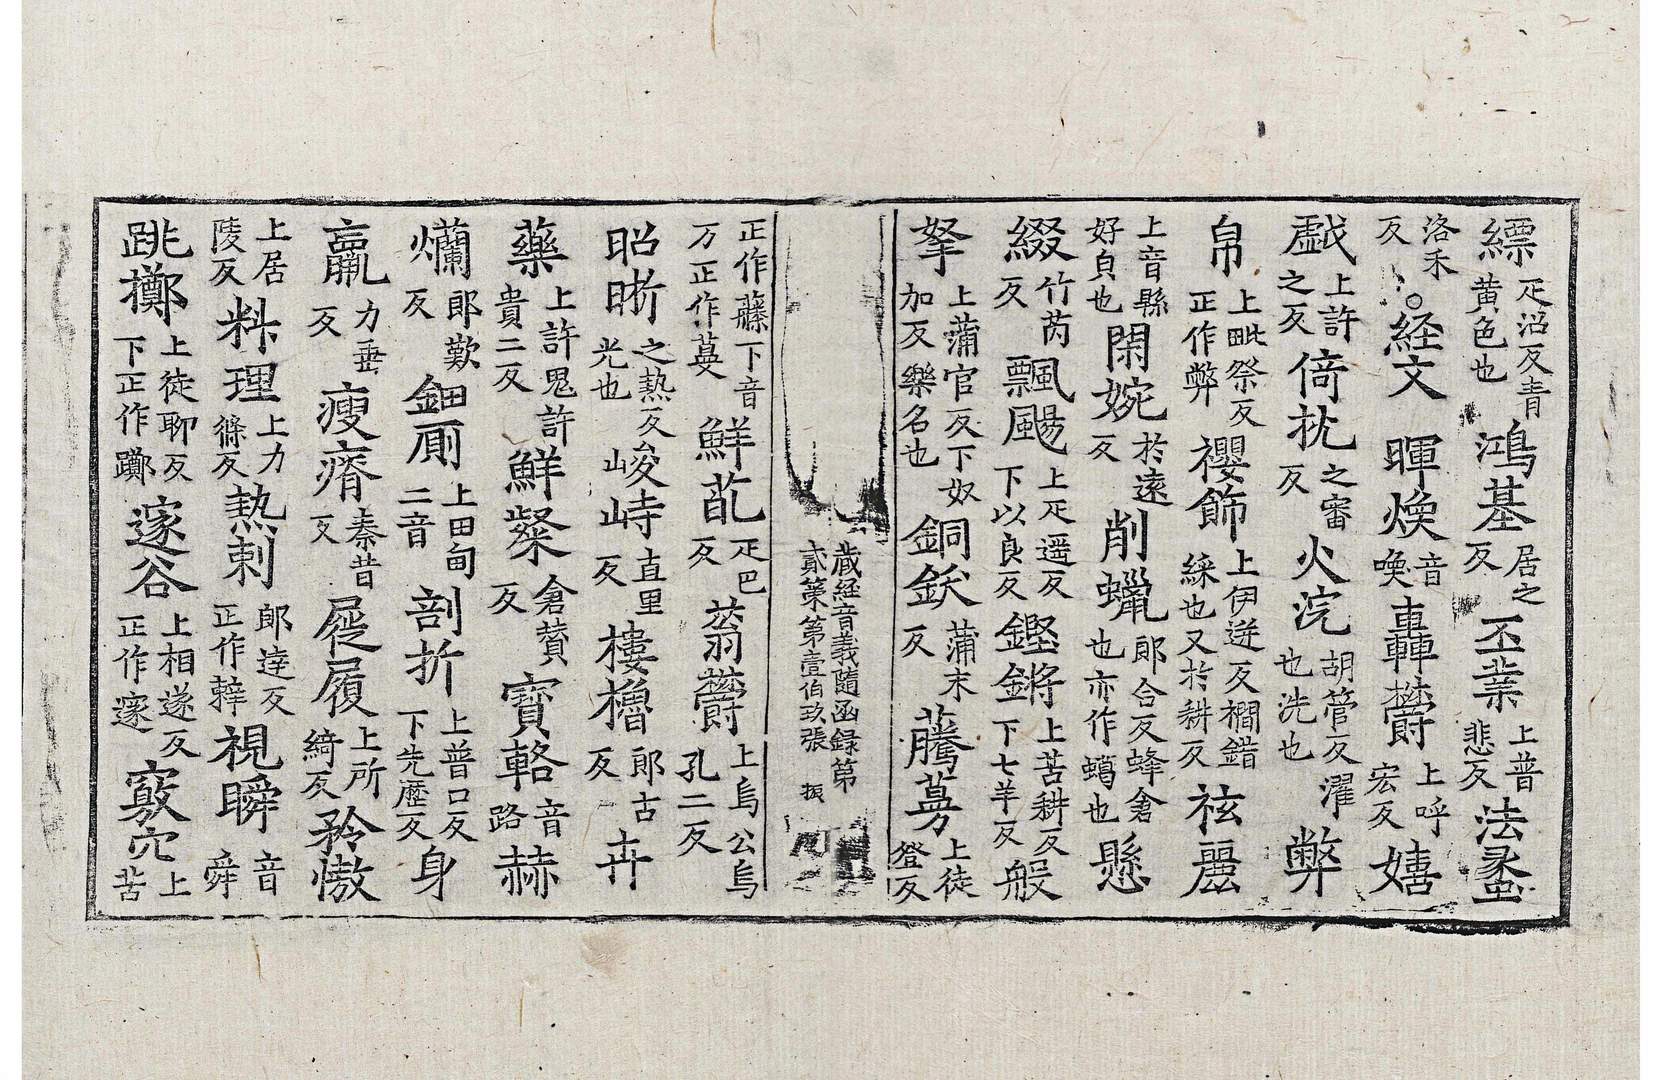 縹疋沼反青黄色也鴻基居之反丕業上普悲反法蠡
洛禾反○経文暉煥音喚轟欎上呼宏反嬉
戯上許之反倚枕之審反火浣胡管反濯也洗也弊
帛上毗祭反正作弊禮飾上伊迸反襉錯綵也又於耕反袨麗
上音縣好皃也閑婉於遠反削蠟郎合反蜂飡也亦作蝋也懸
綴竹芮反飄颺上疋遥反下以良反鏗鏘上苦耕反下七羊反般
拏上蒲官反下奴加反樂名也銅鈸蒲末反藤蔓上徒登反
蔵経音義隨函録第貳第第壹伯玖張 振
正作藤下音万正作蔓鮮葩疋巴反蓊欎上烏公烏孔二反
昭晣之熱反光也峻峙直里反樓櫓郎古反卉
藥上許鬼許貴二反鮮粲倉賛反寶輅音路赫
爛郎歎反鈿厠上田甸二音剖析上普口反下先歷反身
羸力垂反瘦瘠秦昔反屣履上所綺反矜憿
上居陵反料理上力條反熱剌郎達反正作辢視瞬音舜
跳擲上徒聊反下正作躑邃谷上相遂反正作邃竅穴上苦